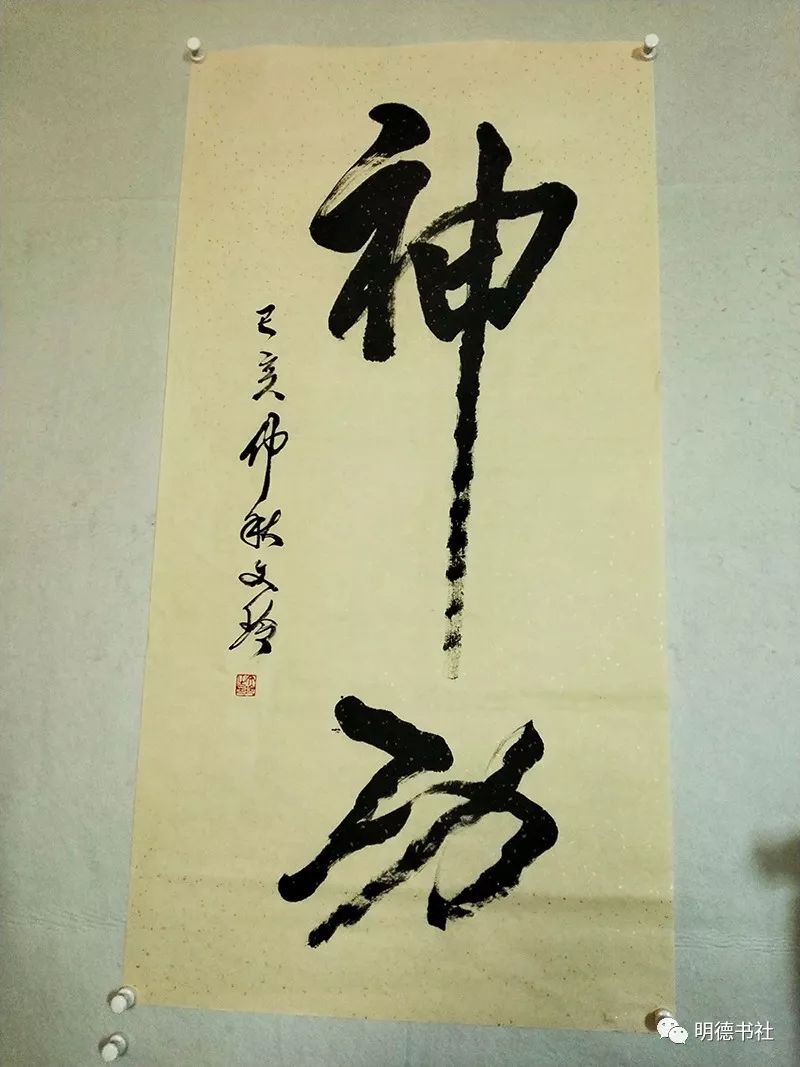 神功
己亥仲秋文玲
明德书社